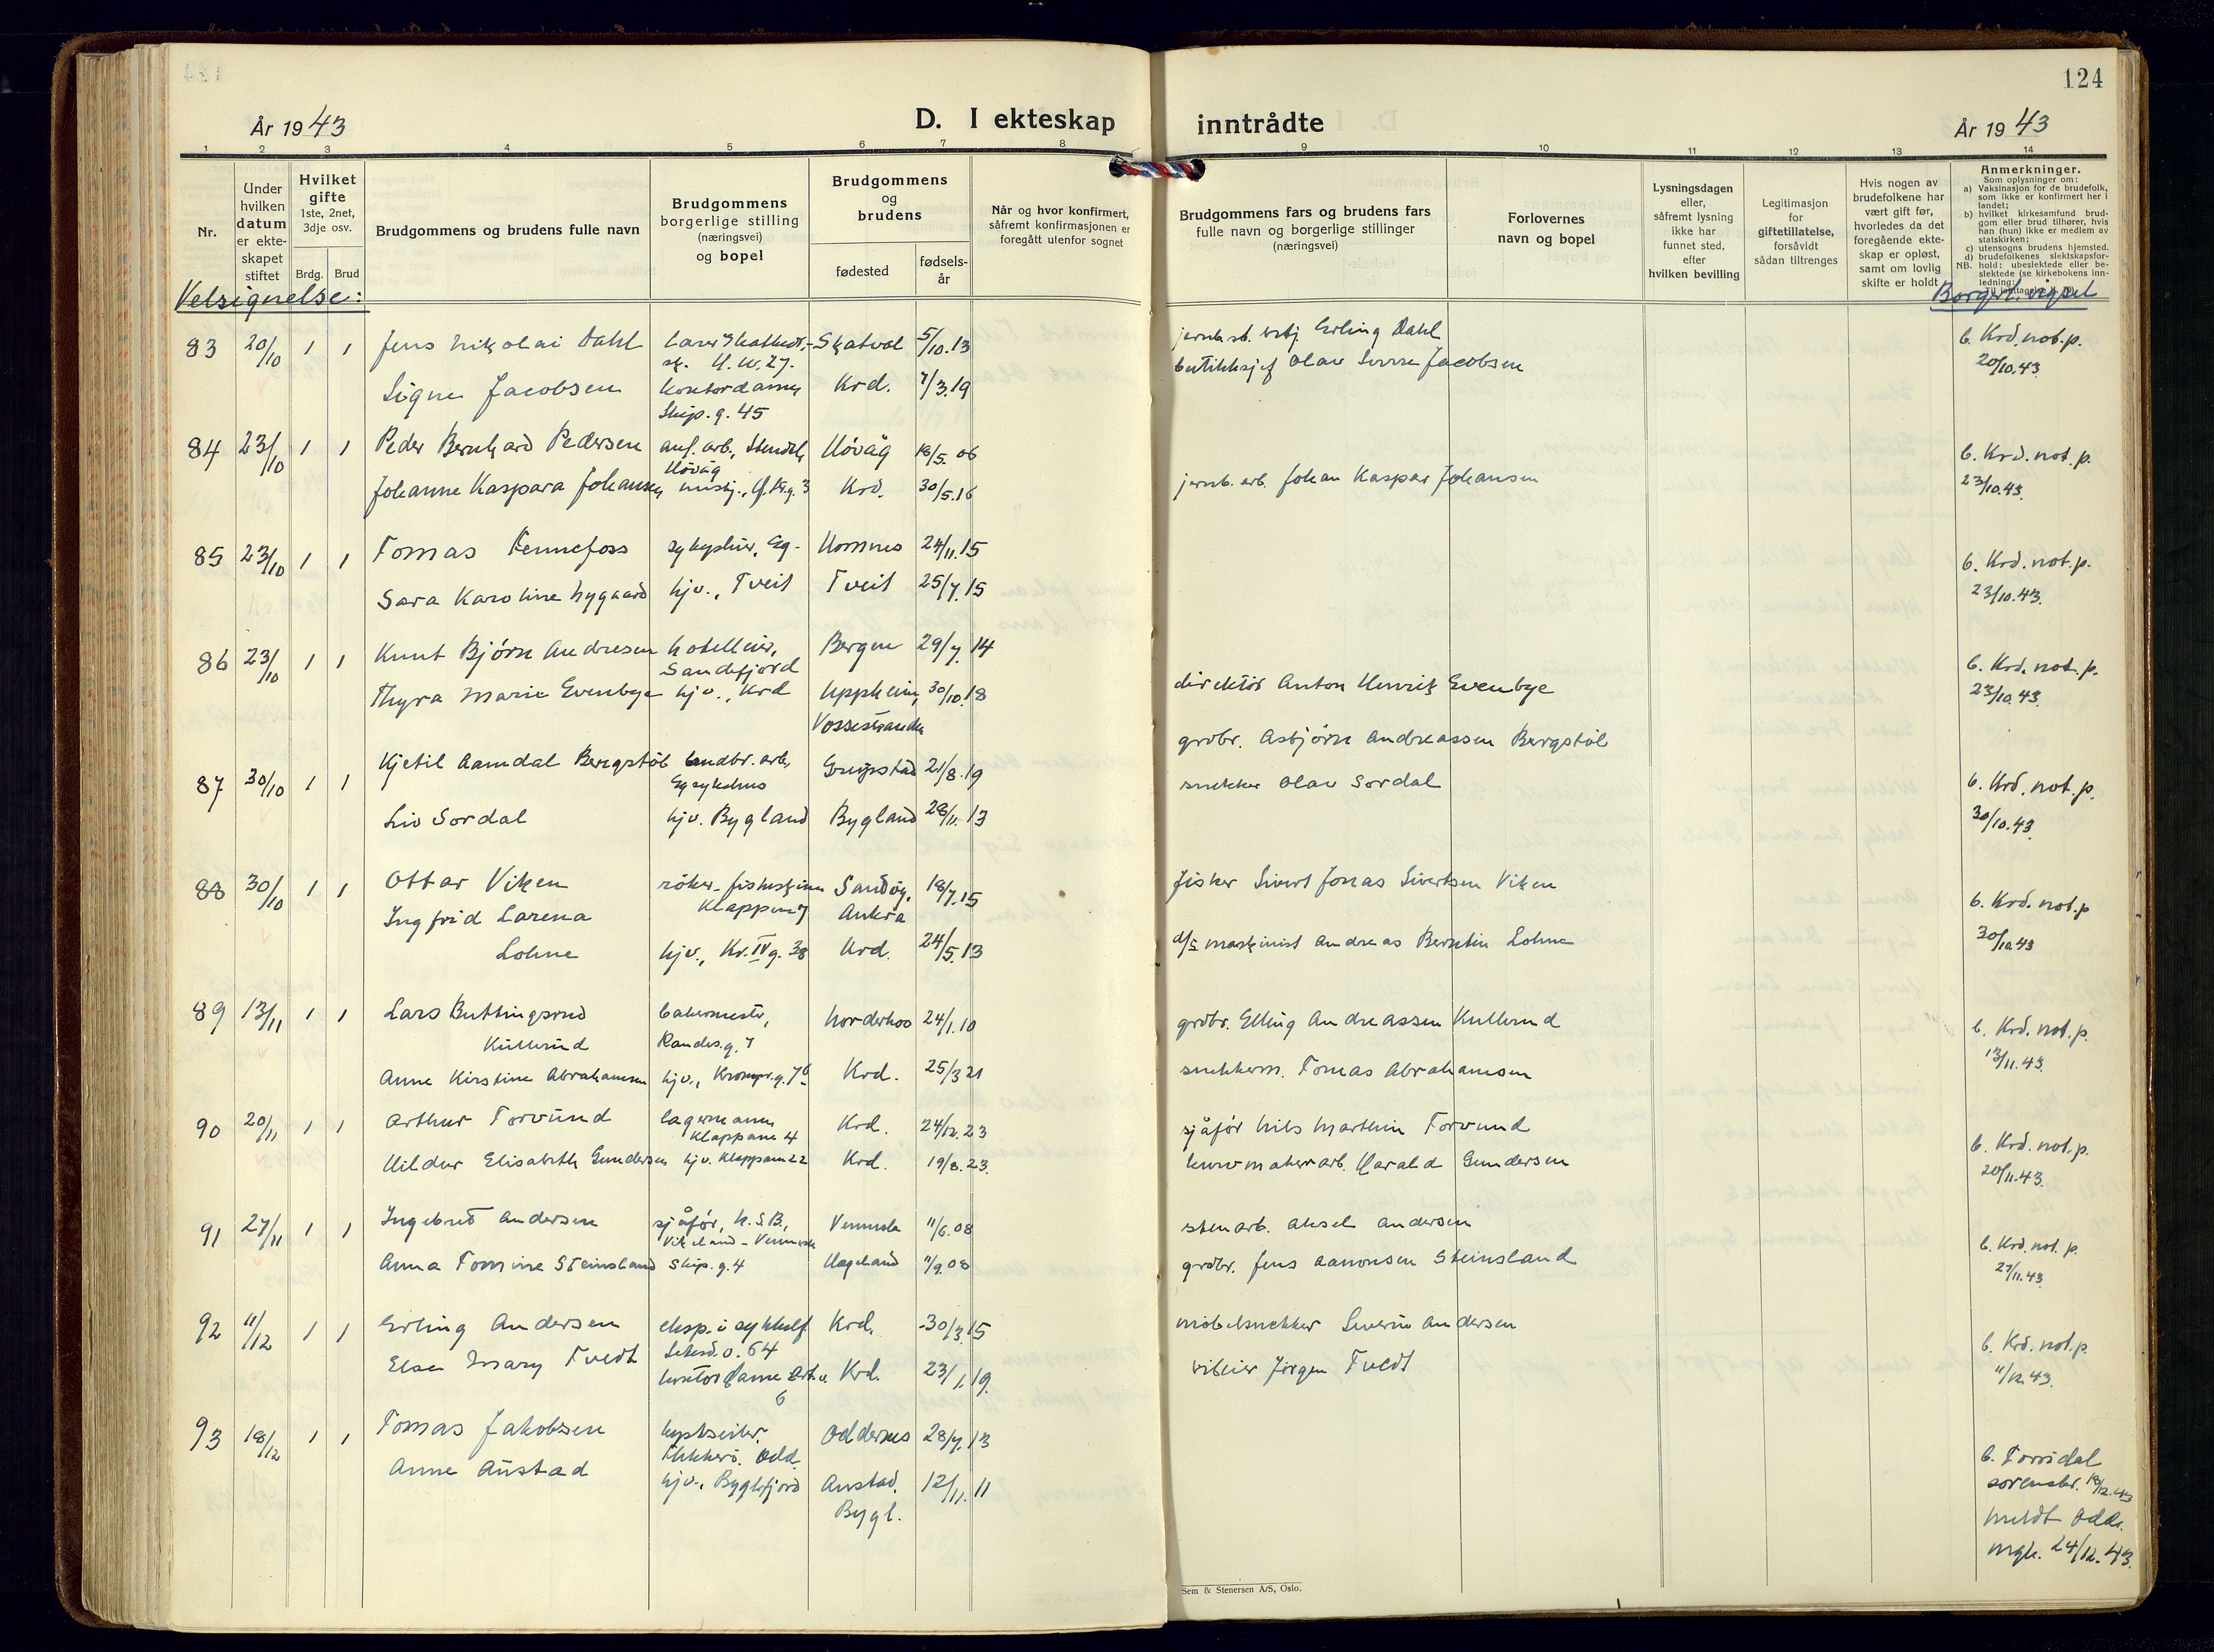 124
År 1943
D. I ekteskap inntrådte
År 1943
1 2 3 4 5 6 7 8 9 10 11 12 13 14
Nr.
Under hvilken datum er ekteskapet stiftet
Hvilket gifte 1ste, 2net, 3dje osv.
Brdg. Brud
Brudgommens og brudens fulle navn
Brudgommens borgerlige stilling (næringsvei) og bopel
Brudgommens og brudens
fødested
fødselsår
Når og hvor konfirmert, såfremt konfirmasjonen er foregått utenfor sognet
Brudgommens fars og brudens fars fulle navn og borgerlige stillinger (næringsvei)
Forlovernes navn og bopel
Lysningsdagen eller, såfremt lysning ikke har funnet sted, efter hvilken bevilling
Legitimasjon for giftetillatelse, forsåvidt sådan tiltrenges
Hvis nogen av brudefolkene har vært gift før, hvorledes da det foregående ekteskap er opløst, samt om lovlig skifte er holdt
Anmerkninger.
Som oplysninger om:
a) Vaksinasjon for de brudefolk, som ikke er konfirmert her i landet;
b) hvilket kirkesamfund brudgom eller brud tilhører, hvis han (hun) ikke er medlem av statskirken;
c) utensogns brudens hjemsted.
d) brudefolkenes slektskapsforhold: ubeslektede eller beslektede (se kirkebokens innledning:
NB.
Velsignelse:
Borgerl. vigsel
83 20/10 1 1 Jens Nikolai Dahl Skatval 5/10.13 Erling Dahl b. Krd. not. p.
20/10.43.
Signe Jacobsen kontordame Krd. 7/3.19 butikksjef Olav Sverre Jacobsen
Skip. g. 45
84 23/10 1 1 Peder Bernhard Pedersen anl. arb., Høvåg 18/5.06 b. Krd. not. p.
Høvåg
Johanne Kaspara Johansen Krd. 30/5.16 jernb. arb. Johan Kaspar Johansen 23/10.43.
85 23/10 1 1 Tomas Fennefoss sykepleier, Eg. Hornnes 24/11.15 b. Krd. not. p.
Sara Karoline Nygaard hjv., Tveit Tveit 25/7.15 23/10.43.
86 23/10 1 1 Knut Bjørn Andresen hotelleier, Bergen 29/7.14 b. Krd. not. p.
Sandefjord
Thyra Marie Evenbye hjv., Krd Uppheim, 30/10.18 direktør Anton Henrik Evenbye 23/10.43.
Vossestranden
87 30/10 1 1 Kjetil Aamdal Bergstøl landbr. arb. Greipstad 21/8.19 grdbr. Asbjørn Andreassen Bergstøl b. Krd. not. p.
Eg sykehus
Liv Sordal hjv. Bygland Bygland 28/11.13 snekker Olav Sordal 30/10.43.
88 30/10 1 1 Ottar Viken Sandøy, 18/7.15 fisker Sivert Jonas Sivertsen Viken b. Krd. not. p
Klappene 7 Aukra
Ingfrid Larena
Lohne hjv., Kr. IV g. 38 Krd. 24/5.13 d/s maskinist Andreas Berntin Lohne 30/10.43
89 13/11 1 1 Lars Buttingsrud bakermester, Norderhov 24/1.10 grdbr. Elling Andreassen Kullerud b. Krd. not. p.
Kullerud Randes. g. 7
Anne Kirstine Abrahamsen hjv., Kronpr. g. 76 Krd. 25/3 21 snekkerm. Tomas Abrahamsen 13/11.43.
90 20/11 1 1 Arthur Torvund lagermann Krd. 24/12.23 sjåfør Nils Marthin Torvund b. Krd. not. p.
Klappane 4
Hildur Elisabeth Gundersen hjv. Klappane 22 Krd. 19/8.23. kurvmakerarb. Harald Gundersen 20/11.43.
91 27/11 1 1 Ingebret Andersen sjåfør, N.S.B., Vennesla 11/6.08 stenarb. Aksel Andersen b. Krd. not. p.
Vikeland - Vennesla
Anna Tomine Steinsland Skip. g. 4 Hægeland 11/9.08 grdbr. Jens Aanonsen Steinsland 27/11.43.
92 11/12 1 1 Erling Andersen Krd. 30/3.15 møbelsnekker Severin Andersen b. Krd. not. p
Else Mary Tvedt kontordame Krd. 23/1.19. Jørgen Tvedt 11/12.43.
6
93 18/12 1 1 Tomas Jakobsen Oddernes 28/7.13 b. Torridal
Flekkerø. Odd. sorenskr. 18/12.43
Anne Austad hjv., Byglandsfjord Austad, 12/11.11 meldt Odd.
Bygl. mgk. 24/12.43.
Sem & Stenersen A/S, Oslo.